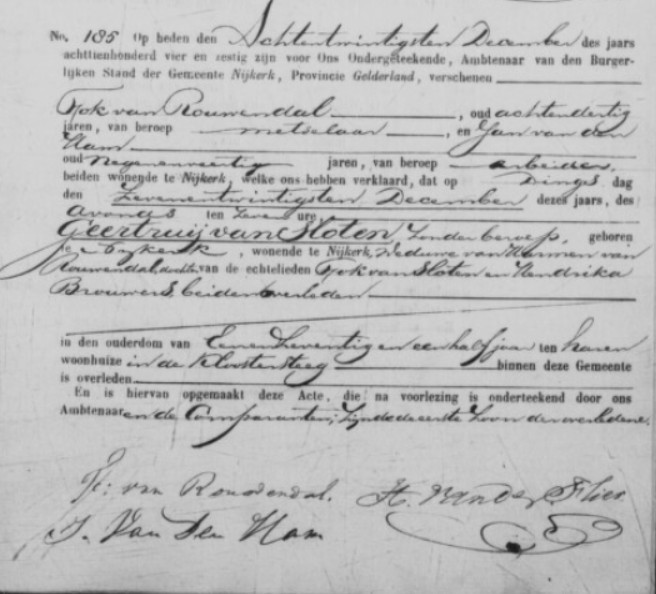 No. 185 Op heden den Achtentwintigsten December des jaars
achttienhonderd vier en zestig zijn voor Ons Ondergeteekende, Ambtenaar van den Burger-
lijken Stand der Gemeente Nijkerk, Provincie Gelderland, verschenen
van Rouwendal, oud achtendertig
jaren, van beroep metselaar, en Jan van den
Ham
oud negenenveertig jaren, van beroep arbeider,
beiden wonende te Nijkerk, welke ons hebben verklaard, dat op Dings dag
den Zevenentwintigsten December dezes jaars, des
avonds ten zeven ure,
Geertruij van Sloten, zonder beroep, geboren
te Nijkerk, wonende te Nijkerk, Weduwe van Harmen van
Rouwendal, dochter van de echtelieden van Sloten en Hendrika
Brouwers, beiden overleden
in den ouderdom van Eenenzeventig en een half jaar ten haren
woonhuize in de Kloostersteeg binnen deze Gemeente
is overleden.
En is hiervan opgemaakt deze Acte, die na voorlezing is onderteekend door ons
Ambtenaar en de Comparanten, zijnde de eerste Zoon der overledene.
van Rouwendal. H. van der Flier
J. Van Den Ham